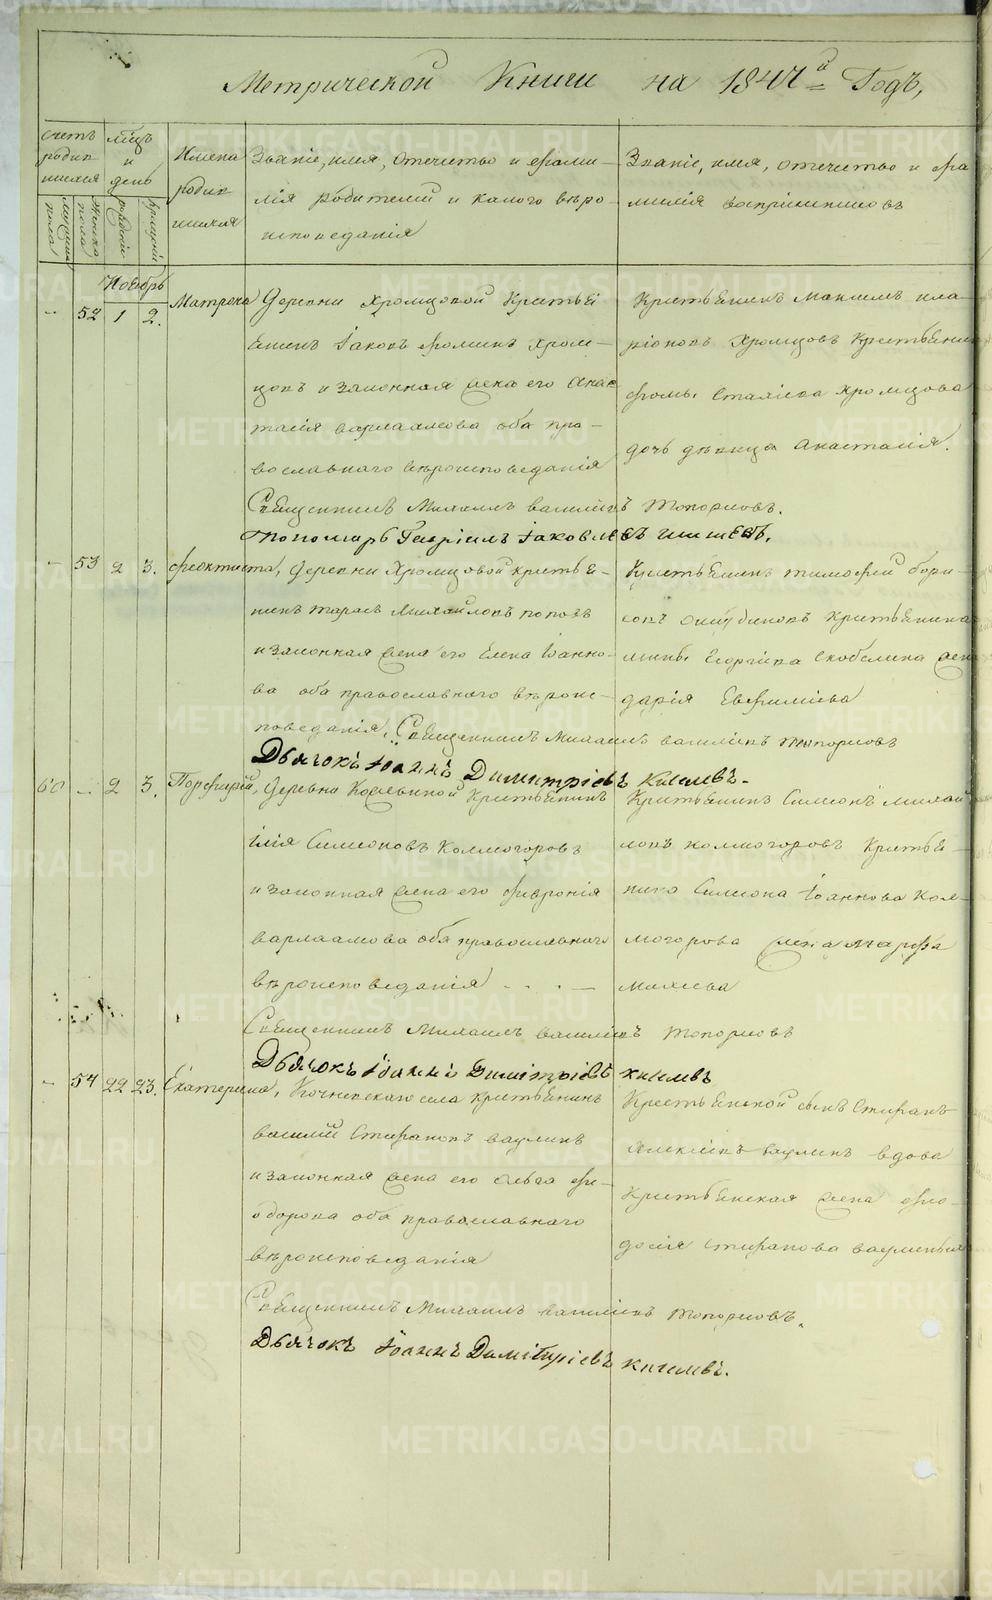 Метрической Книги на 1847й Годъ,
Счетъ родившихся
мужеска пола
женска пола
Мѣсяцъ и день
рожденія
крещенія
Имена родившихся
Званіе, имя, отечество и фамилія родителей и какого вѣроисповеданія
Званіе, имя, отечество и фамилія воспріемниковъ
Ноябрь
52 1 2. Матрона
Деревни Хромцовой Крестьянинъ Іаковъ Фоминъ Хромцовъ и законная жена его Анастасія Варлаамова оба православнаго вѣроисповеданія
Крестьянинъ Максимъ Иларіоновъ Хромцовъ Крестьянина Фомы Хромцова дочь дѣвица Анастасія.
Священникъ Михаилъ Васильевъ Топорковъ.
Пономарь Гавріилъ Іаковлевъ
53 2 3. Феоктиста,
Деревни Хромцовой крестьянинъ Тарасъ Михайловъ Поповъ
и законная жена его Елена Іоаннова оба православнаго вѣроисповеданія,
Крестьянинъ Тимофей Борисовъ Крестьянина Георгіева Скобелина жена Дарія Евфиміева
Священникъ Михаилъ Васильевъ Топорковъ
Дьячокъ Іоаннъ Димитріевъ Киселевъ.
60 2 3. Порфирій,
Деревни Крестьянинъ
Илія Симеоновъ Колмогоровъ
и законная жена его Феvронія
Варлаамова оба православнаго
вѣроисповеданія
Крестьянинъ Симеонъ Михайловъ Колмогоровъ Крестьянина Симеона Іоаннова Колмогорова жена Марфа
Священникъ Михаилъ Васильевъ Топорковъ
Дьячокъ Іоаннъ Димитріевъ Киселевъ
54 22 23. Екатерина,
Кочневскаго села крестьянинъ
Василій Стефановъ Ваулинъ
и законная жена его Ольга Феодорова оба православнаго
вѣроисповеданія
Крестьянской сынъ Стефанъ
Алексіевъ Ваулинъ вдова
Крестьянская жена Феодосія Стефанова Ваулиныхъ
Священникъ Михаилъ Васильевъ Топорковъ.
Дьячокъ Іоаннъ Димитріевъ Киселевъ.
METRIKI.GASO-URAL.RU